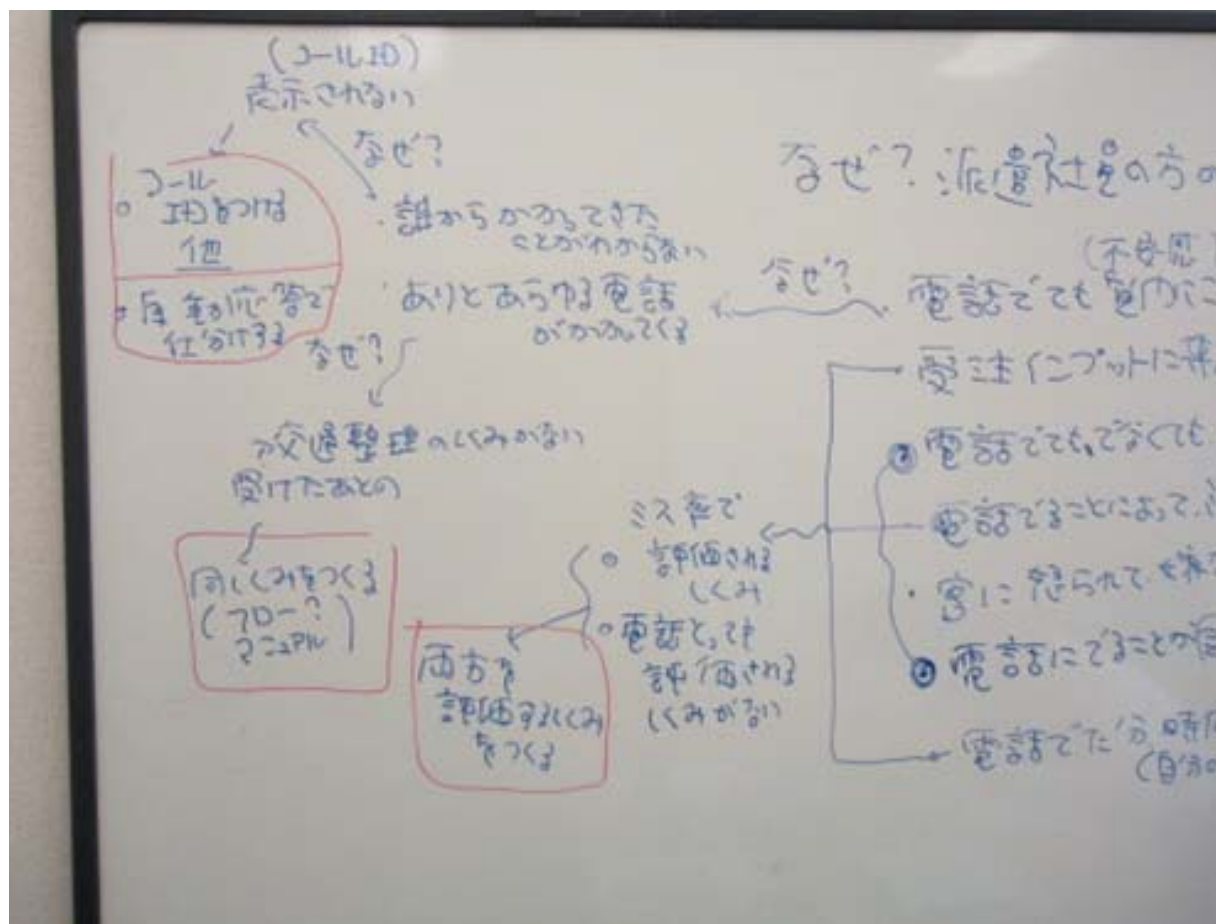 (コールID)
表示されない
なぜ?
コール
IDをつける
他
自動応答で
仕分けする
・誰からかかってきた
ことがわからない
・ありとあらゆる電話
がかかってくる
なぜ?
なぜ?
交通整理のしくみがない
受けたあとの
同しくみをつくる
(フロー?
マニュアル)
両方を
評価するしくみ
をつくる
ミス率で
評価される
しくみ
電話とっても
評価される
しくみがない
なぜ?派遣社員の方の
(不安感
電話でても
受注インプットに
電話でても、でなくても
電話でることによって、
・客に怒られても
電話にでることが
電話でた分時
(自分の